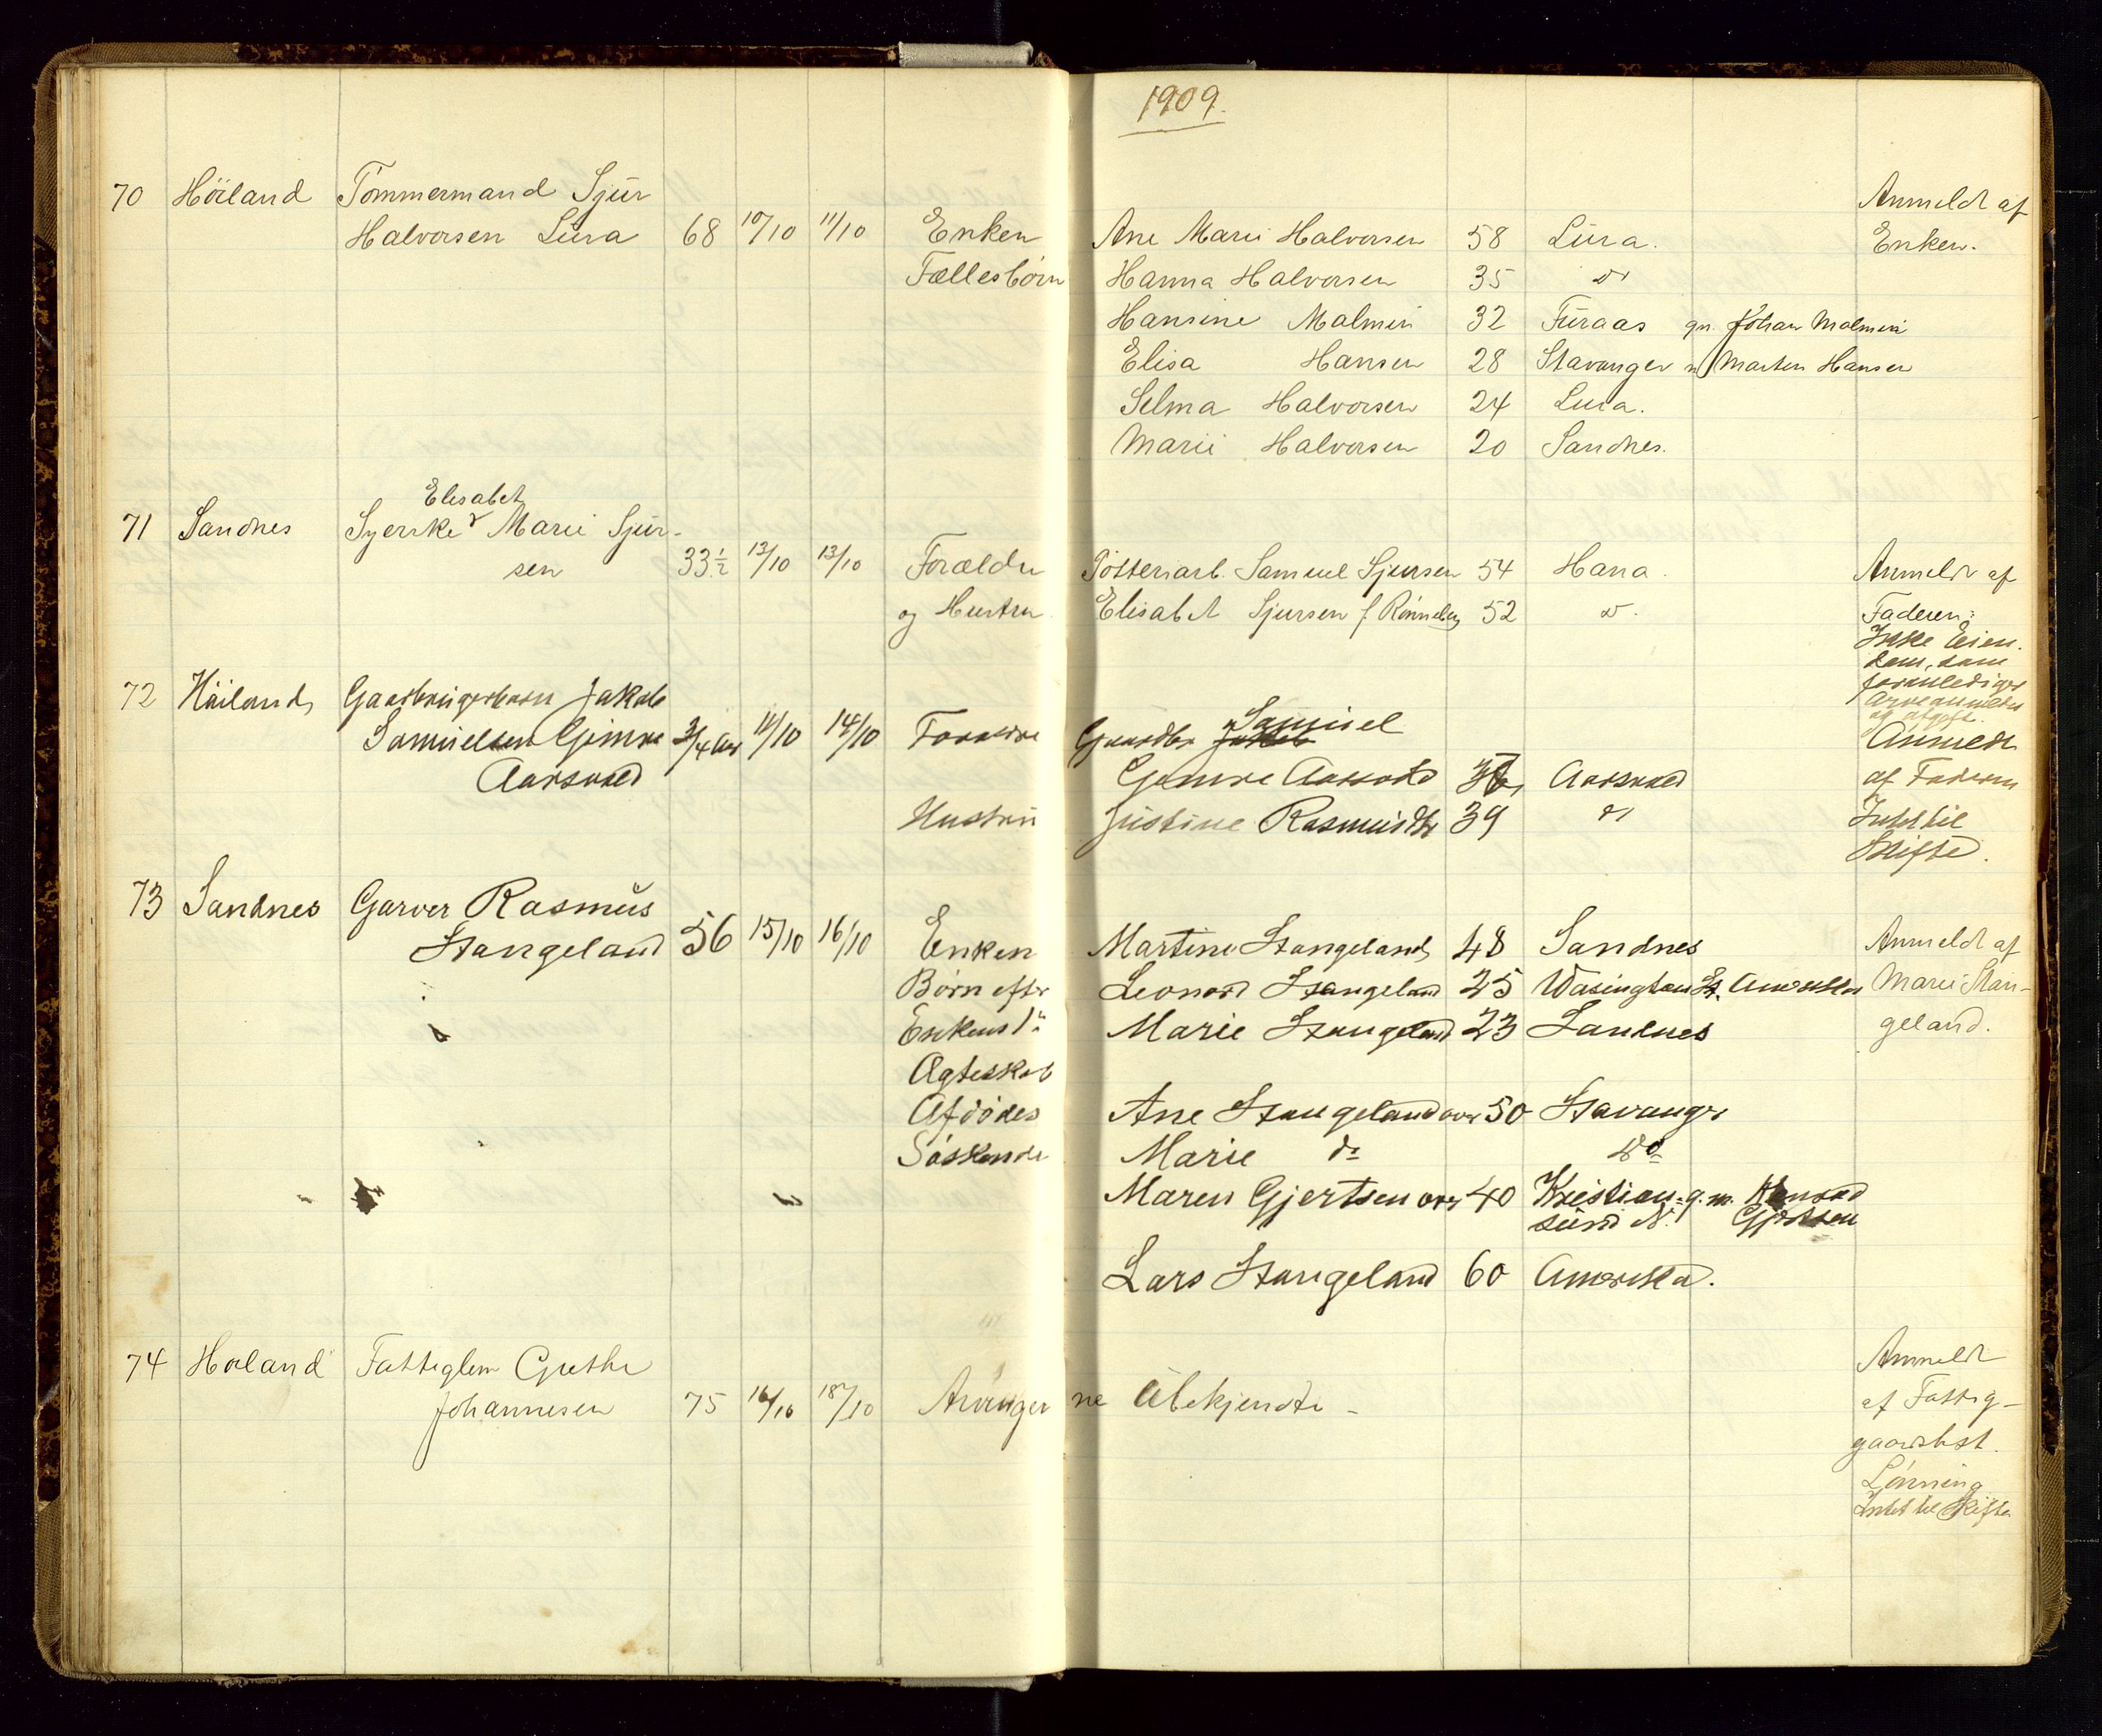 1909.
70 Höiland Tömmermand Sjur
Halvorsen Lura 68 10/10 11/10 Enken Ane Marie Halvorsen 58 Lura. Anmeldt af
Enken.
Fællesbörn Hanna Halvorsen 35 do
Hansine Malmin 32 Furaas gm. Johan Malmin
Elisa Hansen 28 Stavanger " Marten Hansen
Selma Halvorsen 24 Lura.
Marie Halvorsen 20 Sandnes.
Elisabet
71 Sandnes Syerske Marie Sjur-
sen 33 1/2 13/10 13/10 Forældre Potteriarb. Samuel Sjursen 54 Hana. Anmeldt af
og Hustru Elisabet Sjursen f. Rönneberg 52 do. Faderen:
Ikke Eien-
dom, som
foranlediger
Arveanmeldelse
og afgift.
72 Höiland Gaardbrugerbarn Jakob
Samuelsen Gimre 3/4 Aar 11/10 14/10 Forældre Gaardbr. Jakob Samuel Anmeldt
Aarsvold Gimre Aarsvold 36 Aarsvold af Faderen
Hustru Justine Rasmusdtr 39 do Intet til
Skifte.
73 Sandnes Garver Rasmus
Stangeland 56 15/10 16/10 Enken Martine Stangeland 48 Sandnes Anmeldt af
Börn efter Leonard Stangeland 25 Wasington St. Amerika Marie Stan-
Enkens 1ste Marie Stangeland 23 Sandnes geland.
Ægteskab
Afdödes Ane Stangeland over 50 Stavanger
Söskende Marie do do
Maren Gjertsen over 40 Kristian- g.m. Konrad
sund N. Gjertsen
Lars Stangeland 60 Amerika.
74 Höland Fattiglem Grethe Anmeldt
Johannesen 75 16/10 18/10 Arvinger ne Ubekjendte - af Fattig-
gaardsbst.
Lönning
Intet til Skifte